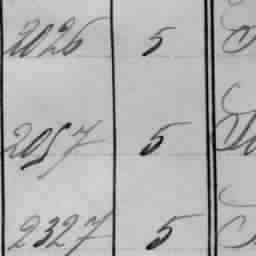 2026 5
2057 5
2327 5